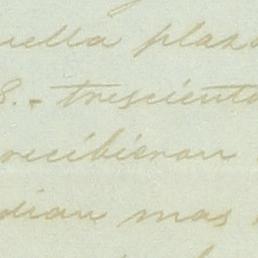 uella plaza
8.- trescienta
recibieron
dian mas